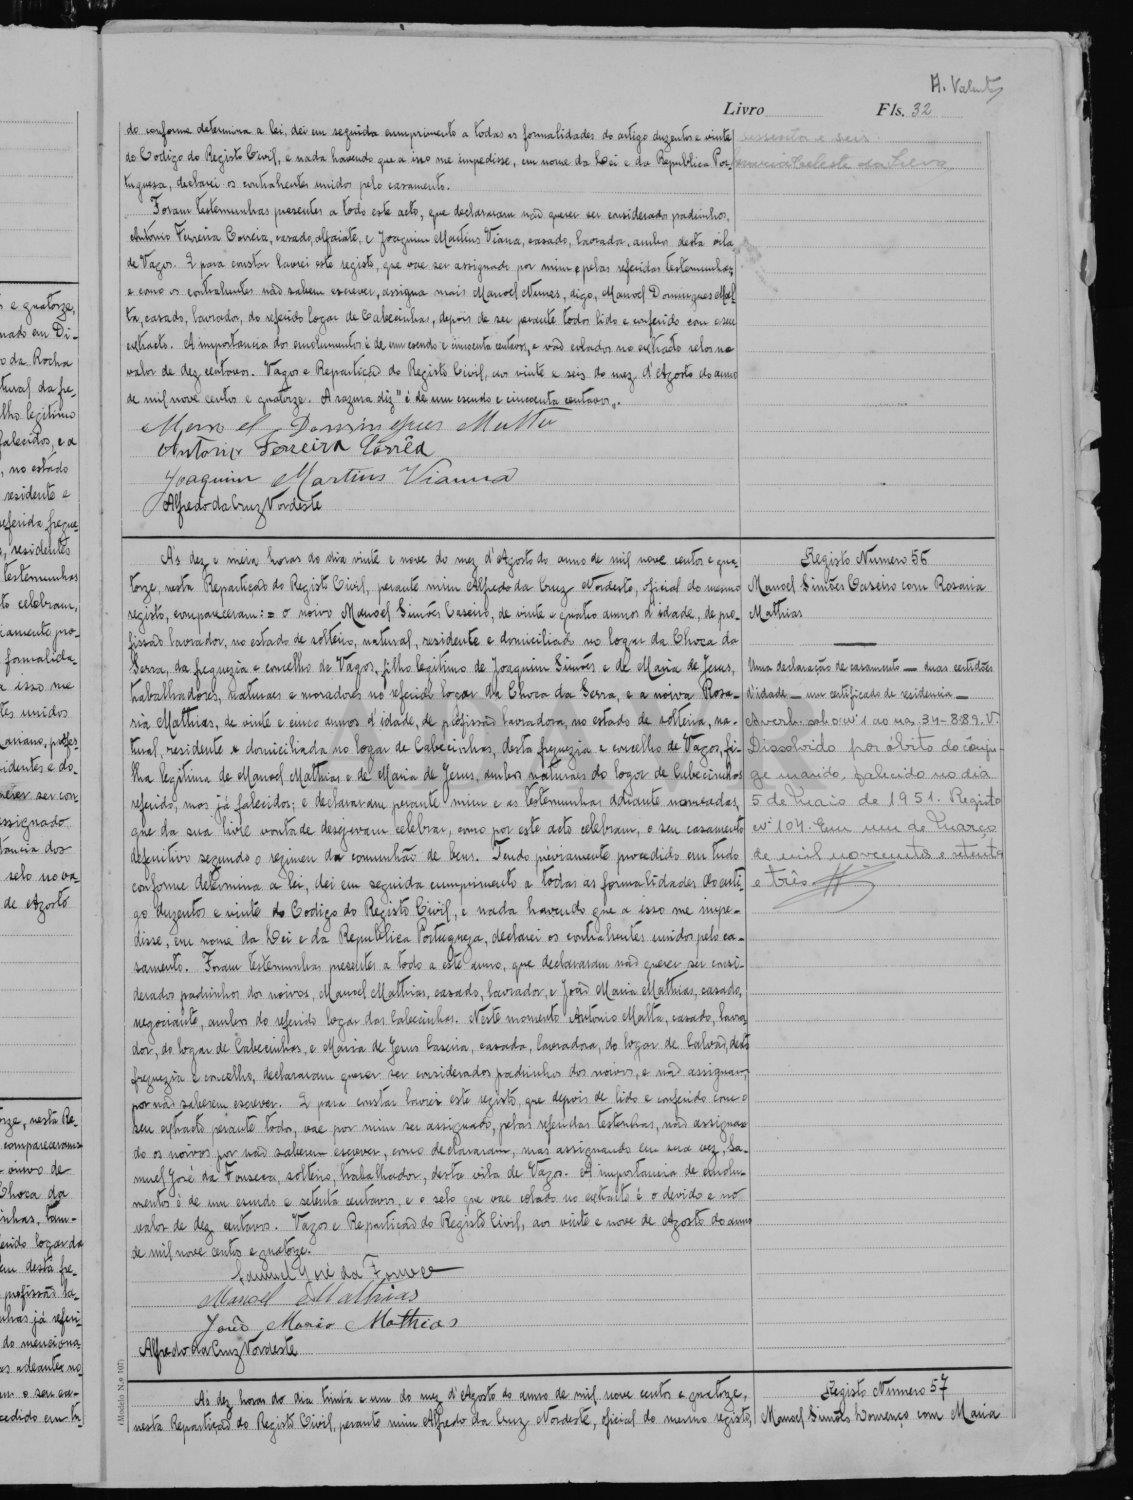 A. Valente
Livro Fls. 32
do conforme determina a lei, dei em seguida cumprimento a todas as formalidades do artigo duzentos e vinte
do Codigo do Registo Civil, e nada havendo que a isso me impedisse, em nome da Lei e da Republica Por-
tuguesa, declarei os contrahentes unidos pelo casamento.
sessenta e seis
Maria Celeste da Silva
Foram testemunhas presentes a todo este acto, que declararam não querer ser considerados padrinhos,
Antonio Ferreira Correia, casado, alfaiate, e Joaquim Martins Viana, casado, lavrador, ambos desta vila
de Vagos. E para constar lavrei este registo, que vae ser assignado por mim e pelas referidas testemunhas,
e como os contrahentes não sabem escrever, assigna mais Manoel Nunes, digo, Manoel Domingues Mal-
ta, casado, lavrador, do referido logar de Cabecinhas, depois de ser perante todos lido e conferido com o seu
extracto. A importancia dos emolumentos é de um escudo e cincoenta centavos, e vão colados no extracto selos no
valor de dez centavos. Vagos e Repartição do Registo Civil, aos vinte e seis do mez d'Agosto do anno
de mil nove centos e quatorze. A rasura diz "é de um escudo e cincoenta centavos".
Manoel Domingues Malta
Antonio Ferreira Corrêa
Joaquim Martins Vianna
Alfredo da Cruz Nordeste
A's dez e meia horas do dia vinte e nove do mez d'Agosto do anno de mil nove centos e qua-
torze, nesta Repartição do Registo Civil, perante mim Alfredo da Cruz Nordeste, oficial do mesmo
registo, compareceram:= o noivo Manoel Simões Caseiro, de vinte e quatro annos d'idade, de pro-
fissão lavrador, no estado de solteiro, natural, residente e domiciliado no logar da Choza da
Serra, da freguezia e concelho de Vagos, filho legitimo de Joaquim Simões e de Maria de Jesus,
trabalhadores, naturaes e moradores no referido logar da Choca da Serra, e a noiva Rosa-
ria Matthias, de vinte e cinco annos d'idade, de profissão lavradora, no estado de solteira, na-
tural, residente e domiciliada no logar de Cabecinhas, desta freguezia e concelho de Vagos, fi-
lha legitima de Manoel Matthias e de Maria de Jesus, ambos naturaes do logar de Cabecinhas
referido, mas já falecidos; e declararam perante mim e as testemunhas adiante nomeadas,
que da sua livre vontade desejavam celebrar, como por este acto celebram, o seu casamento
definitivo segundo o regimen da comunhão de bens. Tendo préviamente procedido em tudo
conforme determina a lei, dei em seguida cumprimento a todas as formalidades do arti-
go duzentos e vinte do Codigo do Registo Civil, e nada havendo que a isso me impe-
disse, em nome da Lei e da Republica Portugueza, declarei os contrahentes unidos pelo ca-
samento. Foram testemunhas presentes a todo a este anno, que declararam não querer ser consi-
derados padrinhos dos noivos, Manoel Matthias, casado, lavrador, e João Maria Matthias, casado,
negociante, ambos do referido logar das Cabecinhas. Neste momento Antonio Malta, casado, lavra-
dor, do logar de Cabecinhas, e Maria de Jesus Caseira, casada, lavradora, do logar de Calvão, desta
freguezia e concelho, declararam querer ser considerados padrinhos dos noivos, e não assignam,
por não saberem escrever. E para constar lavrei este registo, que depois de lido e conferido com o
seu extracto perante todos, vae por mim ser assignado, pelas referidas testemhas, não assignan-
do os noivos por não saberem escrever, como declararam, mas assignando em seu vez, Sa-
muel José da Fonseca, solteiro, trabalhador, desta vila de Vagos. A importancia de emolu-
mentos é de um escudo e setenta centavos, e o selo que vae colado no extracto é o devido e no
valor de dez centavos. Vagos e Repartição do Registo Civil, aos vinte e nove de Agosto do anno
de mil nove centos e quatorze.
Samuel José da Fonseca
Manoel Mathias
João Maria Mathias
Alfredo da Cruz Nordeste
Registo Numero 56
Manoel Simões Caseiro com Rosaria
Matthias
Uma declaração de casamento — duas certidões
d'idade — um certificado de residencia —
Averb. sob o nº 1 ao nº 34-889. V.
Dissolvido por óbito do cônju-
ge marido, falecido no dia
5 de Maio de 1951. Registo
nº 107. Em um de Março
de mil novecentos e setenta
e três.
(Modelo N.º 107)
A's dez horas do dia trinta e um do mez d'Agosto do anno de mil nove centos e quatorze,
nesta Repartição do Registo Civil, perante mim Alfredo da Cruz Nordeste, oficial do mesmo registo,
Registo Numero 57
Manoel Simões Lourenço com Maria